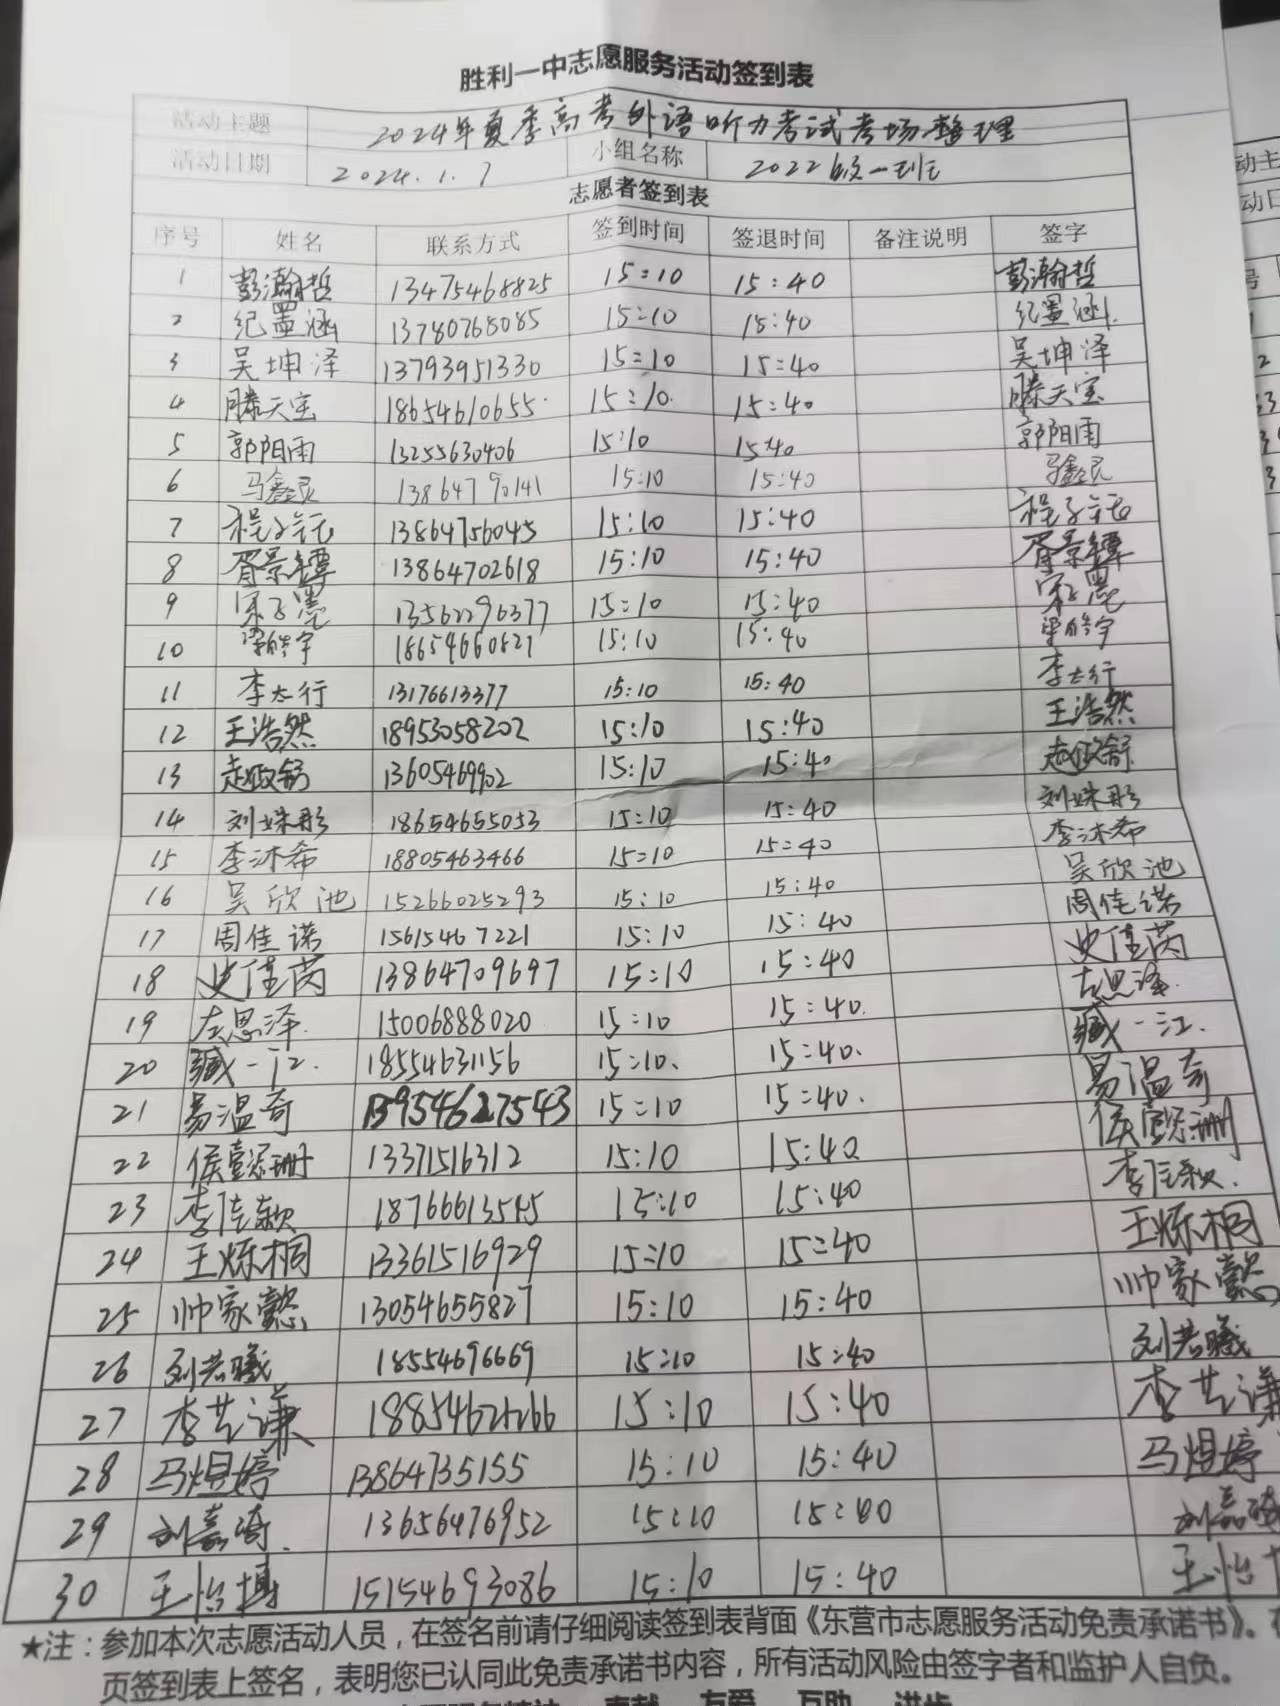 胜利一中志愿服务活动签到表
活动主题 2024年夏季高考外语听力考试考场整理
活动日期 2024.1.7 小组名称 2022级一班
志愿者签到表
序号 姓名 联系方式 签到时间 签退时间 备注说明 签字
1 彭瀚哲 13475468825 15:10 15:40 彭瀚哲
2 纪墨涵 13780768085 15:10 15:40 纪墨涵
3 吴坤泽 13793951330 15:10 15:40 吴坤泽
4 滕天宝 18654610655 15:10 15:40 滕天宝
5 郭阳雨 13255630406 15:10 15:40 郭阳雨
6 马鑫灵 13864790141 15:10 15:40 马鑫灵
7 程子 13864756045 15:10 15:40 程子
8 胥景 13864702618 15:10 15:40 胥景
9 宋子墨 13562296377 15:10 15:40 宋子墨
10 梁皓宇 18654660821 15:10 15:40 梁皓宇
11 李太行 13176613377 15:10 15:40 李太行
12 王浩然 18953058202 15:10 15:40 王浩然
13 赵政舒 13605469902 15:10 15:40 赵政舒
14 刘姝彤 18654655053 15:10 15:40 刘姝彤
15 李沐希 18805463466 15:10 15:40 李沐希
16 吴欣池 15266025293 15:10 15:40 吴欣池
17 周佳诺 15615467221 15:10 15:40 周佳诺
18 史佳茵 13864709697 15:10 15:40 史佳茵
19 左思泽 15006888020 15:10 15:40 左思泽
20 臧一江 18554631156 15:10 15:40 臧一江
21 易温奇 13954627543 15:10 15:40 易温奇
22 侯懿珊 13371516312 15:10 15:40 侯懿珊
23 李佳颖 15:10 15:40 李佳颖
24 王烁桐 13361516929 15:10 15:40 王烁桐
25 帅家懿 13054655827 15:10 15:40 帅家懿
26 刘若曦 18554696669 15:10 15:40 刘若曦
27 李艺谦 15:10 15:40 李艺谦
28 马煜婷 13864735155 15:10 15:40 马煜婷
29 刘嘉琦 13656476952 15:10 15:40 刘嘉琦
30 王怡博 15154693086 15:10 15:40 王怡
★注：参加本次志愿活动人员，在签名前请仔细阅读签到表背面《东营市志愿服务活动免责承诺书》。
页签到表上签名，表明您已认同此免责承诺书内容，所有活动风险由签字者和监护人自负。
奉献 友爱 互助 进步